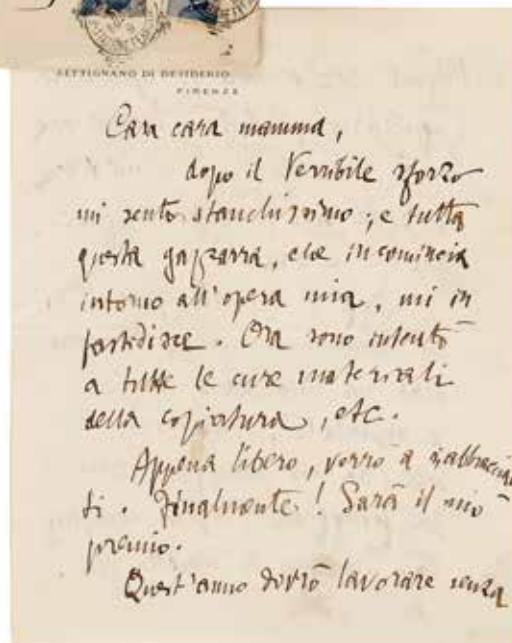 SETTIGNANO DI DESIDERIO
FIRENZE
Cara cara mamma,
dopo il terribile sforzo
mi sento stanchissimo; e tutta
questa gazzarra, che incomincia
intorno all'opera mia, mi in
fastidisce. Ora sono intento
a tutte le cure materiali
della copiatura, etc.
Appena libero, verrò a riabbracciar
ti. Finalmente! Sarà il mio
premio.
Quest'anno dovrò lavorare senza